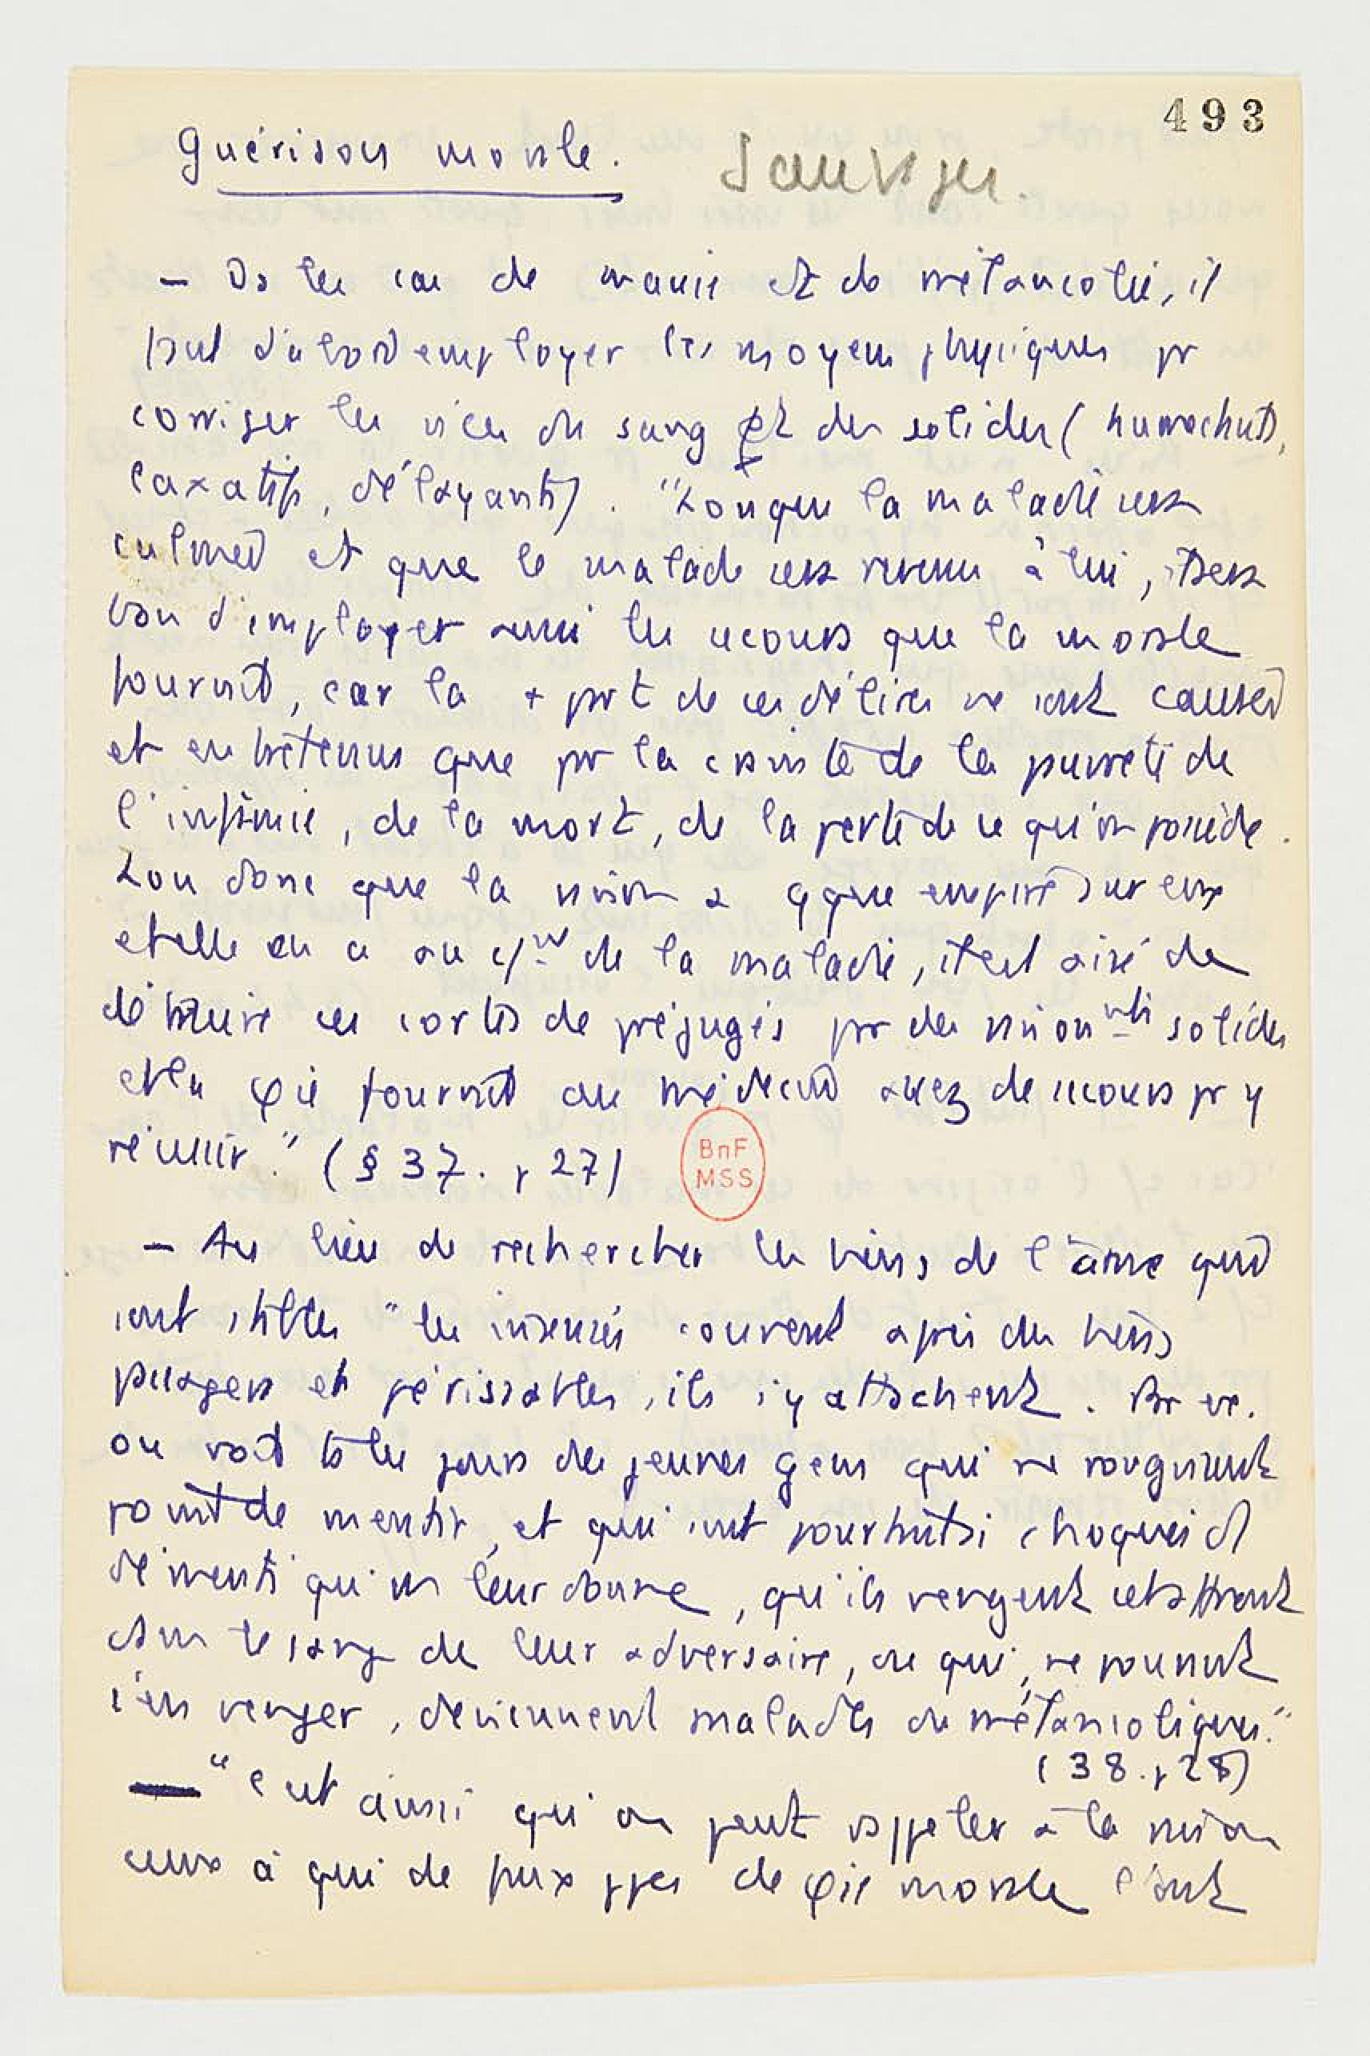 493
Guérison morale. Sauvages.
– Ds les cas de manie et de mélancolie, il
faut d'abord employer les moyens physiques pr
corriger les vices du sang et des solides (humectants,
laxatifs, délayants). "Lorsque la maladie sera
calmée et que le malade sera revenu à lui, il sera
bon d'employer aussi les secours que la morale
fournit, car la + part de ces délires ne sont causés
et entretenus que par la crainte de la pauvreté de
l'infamie, de la mort, de la perte de ce qu'on possède.
Lors donc que la raison a qque empire sur eux
et elle en a au c/nt de la maladie, il est aisé de
détruire ces sortes de préjugés par des raisonnts solides
et la φie fournit au médecin assez de secours pr y
réussir." (§ 37. p 27)
BnF
MSS
– Au lieu de rechercher les biens de l'âme qui
sont stables "les insensés courent après des biens
passagers et périssables, ils s'y attachent. Par ex.
on voit ts les jours des jeunes gens qui ne rougissent
point de mentir, et qui sont pourtant si choqués d'1
démenti qu'on leur donne, qu'ils vengent cet affront
dans le sang de leur adversaire, ou qui, ne pouvant
s'en venger, deviennent malades ou mélancoliques."
(38. p 28)
– "C'est ainsi qu'on peut rappeler à la raison
ceux à qui de faux ppes de φie morale l'ont